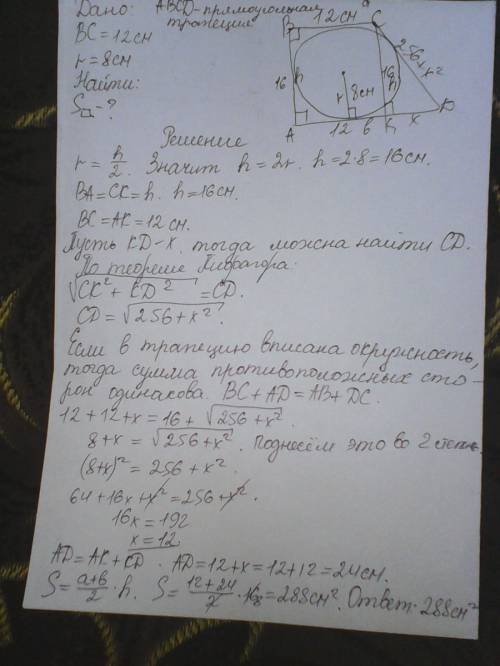 Дано: ABCD - прямоугольная
трапеция
BC = 12 см
r = 8 см
Найти:
S▱ - ?
B 12 см C
16 h 16 h √256+x²
r 8 см
A 12 b K x D
Решение
r = h/2. Значит h = 2r. h = 2·8 = 16 см.
BA = CK = h. h = 16 см.
BC = AK = 12 см.
Пусть KD - x, тогда можна найти CD.
По теореме Пифагора:
√CK² + KD² = CD.
CD = √256 + x².
Если в трапецию вписана окружность,
тогда сумма противоположных сто-
рон одинакова. BC + AD = AB + DC.
12 + 12 + x = 16 + √256 + x².
8 + x = √256 + x². Поднесём это во 2 степ.
(8+x)² = 256 + x².
64 + 16x + x² = 256 + x².
16x = 192
x = 12
AD = AK + KD. AD = 12 + x = 12 + 12 = 24 см.
S = (a+b)/2 · h. S = (12+24)/2 · 16 8 = 288 см². Ответ: 288 см²